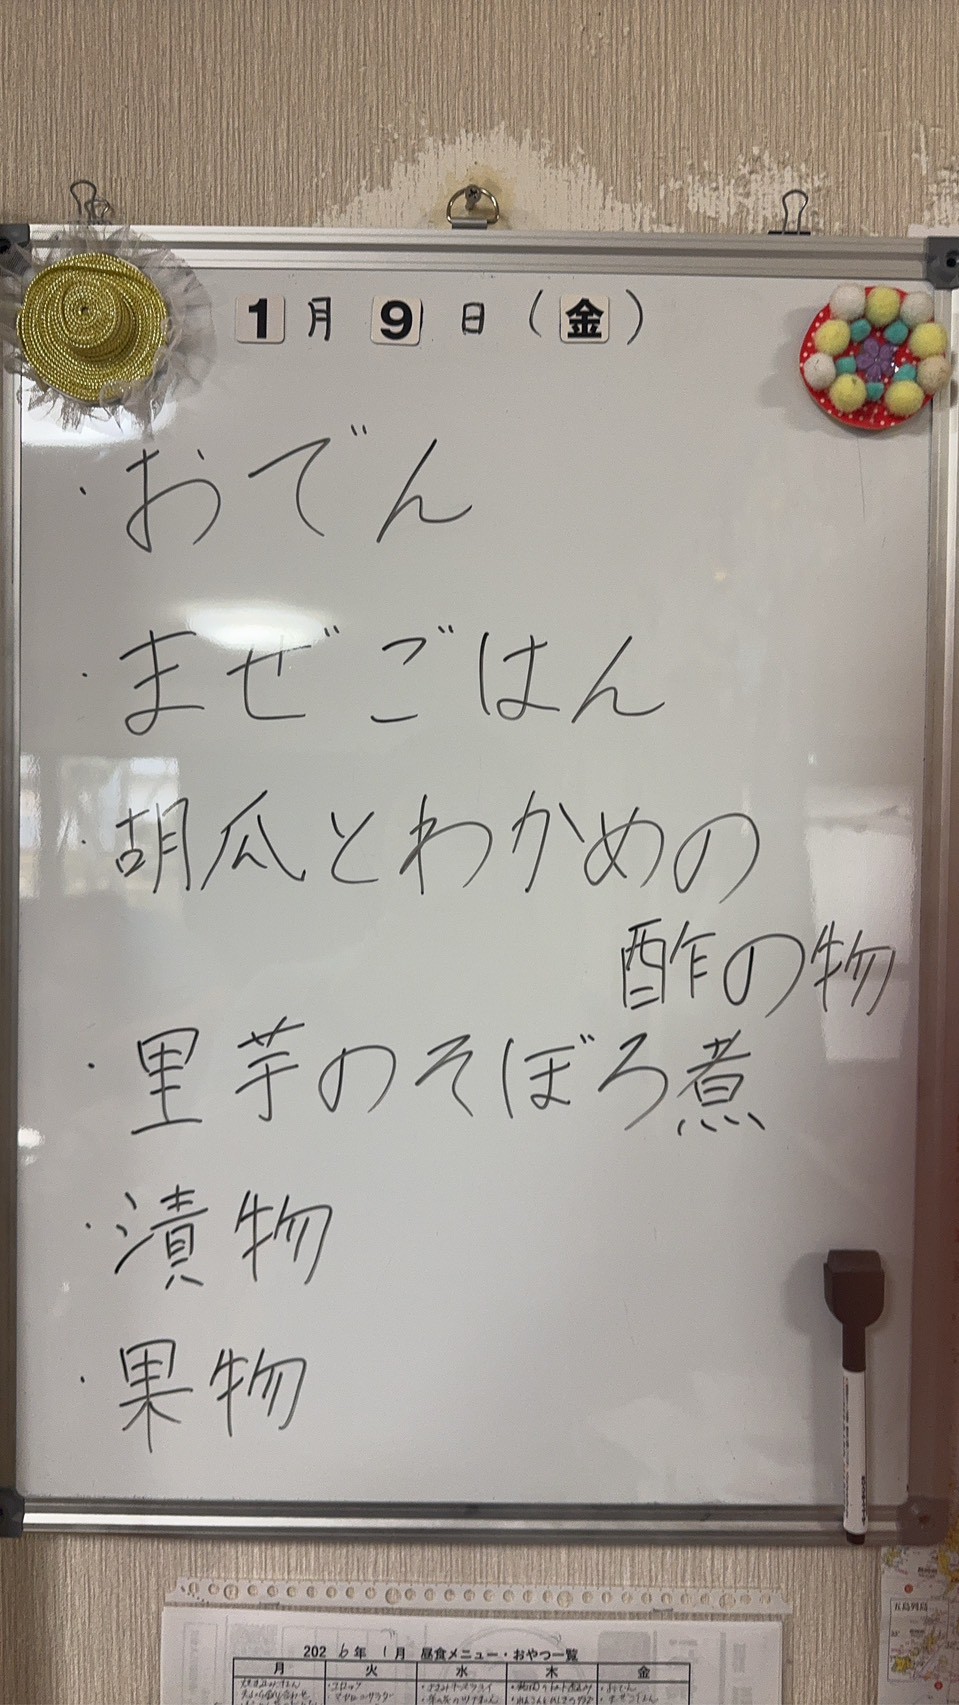 1月9日(金)
・おでん
・まぜごはん
・胡瓜とわかめの
酢の物
・里芋のそぼろ煮
・漬物
・果物
五島列島
2026年1月 昼食メニュー・おやつ一覧
月 火 水 木 金
・コロッケ ・おでん
・マカロニサラダ ・まぜごはん